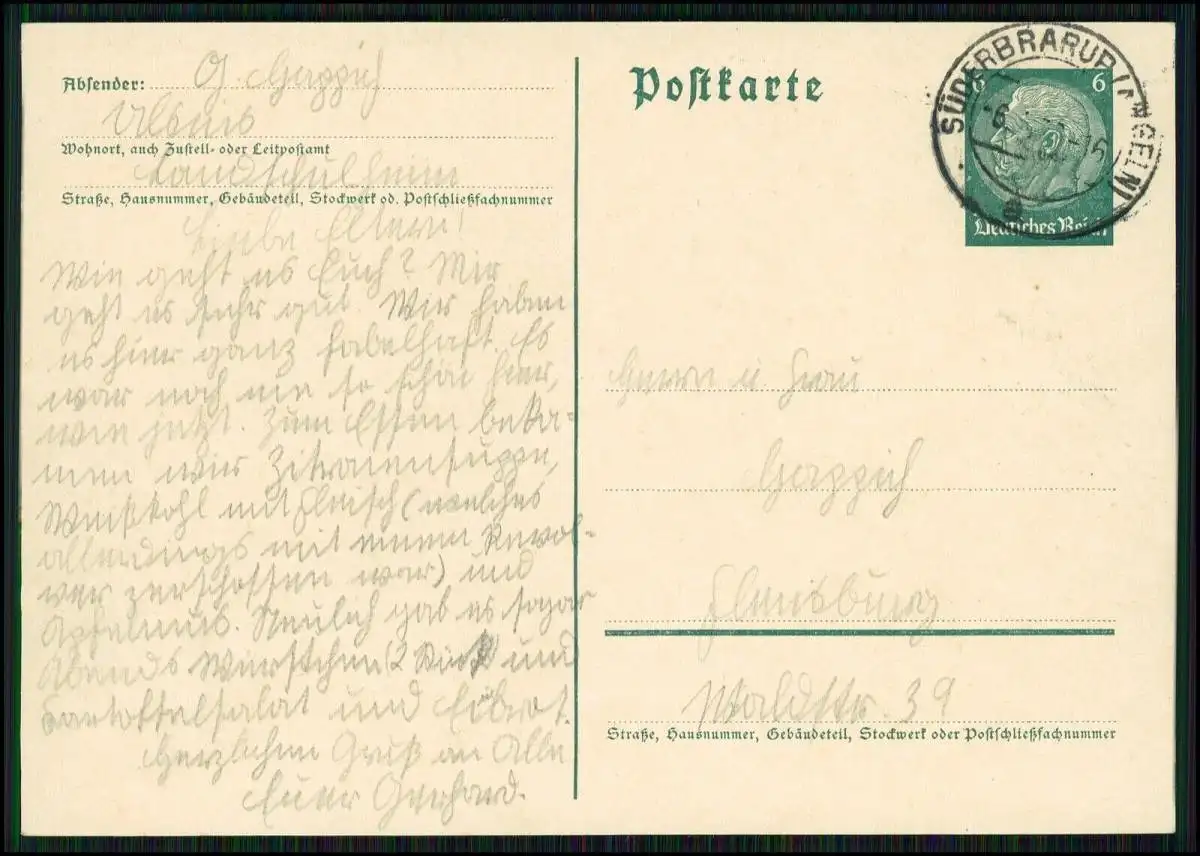 Absender: G. Gappich
Ulsnis
Wohnort, auch Zustell- oder Leitpostamt
Landschulheim
Straße, Hausnummer, Gebäudeteil, Stockwerk od. Postschließfachnummer
Liebe Eltern!
Wie geht es Euch? Mir
geht es sehr gut. Wir haben
es hier ganz fabelhaft. Es
war noch nie so schön hier,
wie jetzt. Zum Essen beka-
men wir Zitronensuppe,
Weißkohl mit Fleisch (welches
allerdings mit einem Revol-
ver zerschossen war) und
Apfelmus. Neulich gab es sogar
Abends Würstchen (2 Stück) und
Kartoffelsalat und
Herzlichen Gruß an Alle
Euer Gerhard.
Postkarte
SÜDERBRARUP (ANGELN)
a
6 6
Deutsches Reich
Herrn u Frau
Gappich
Flensburg
Waldstr. 39
Straße, Hausnummer, Gebäudeteil, Stockwerk oder Postschließfachnummer